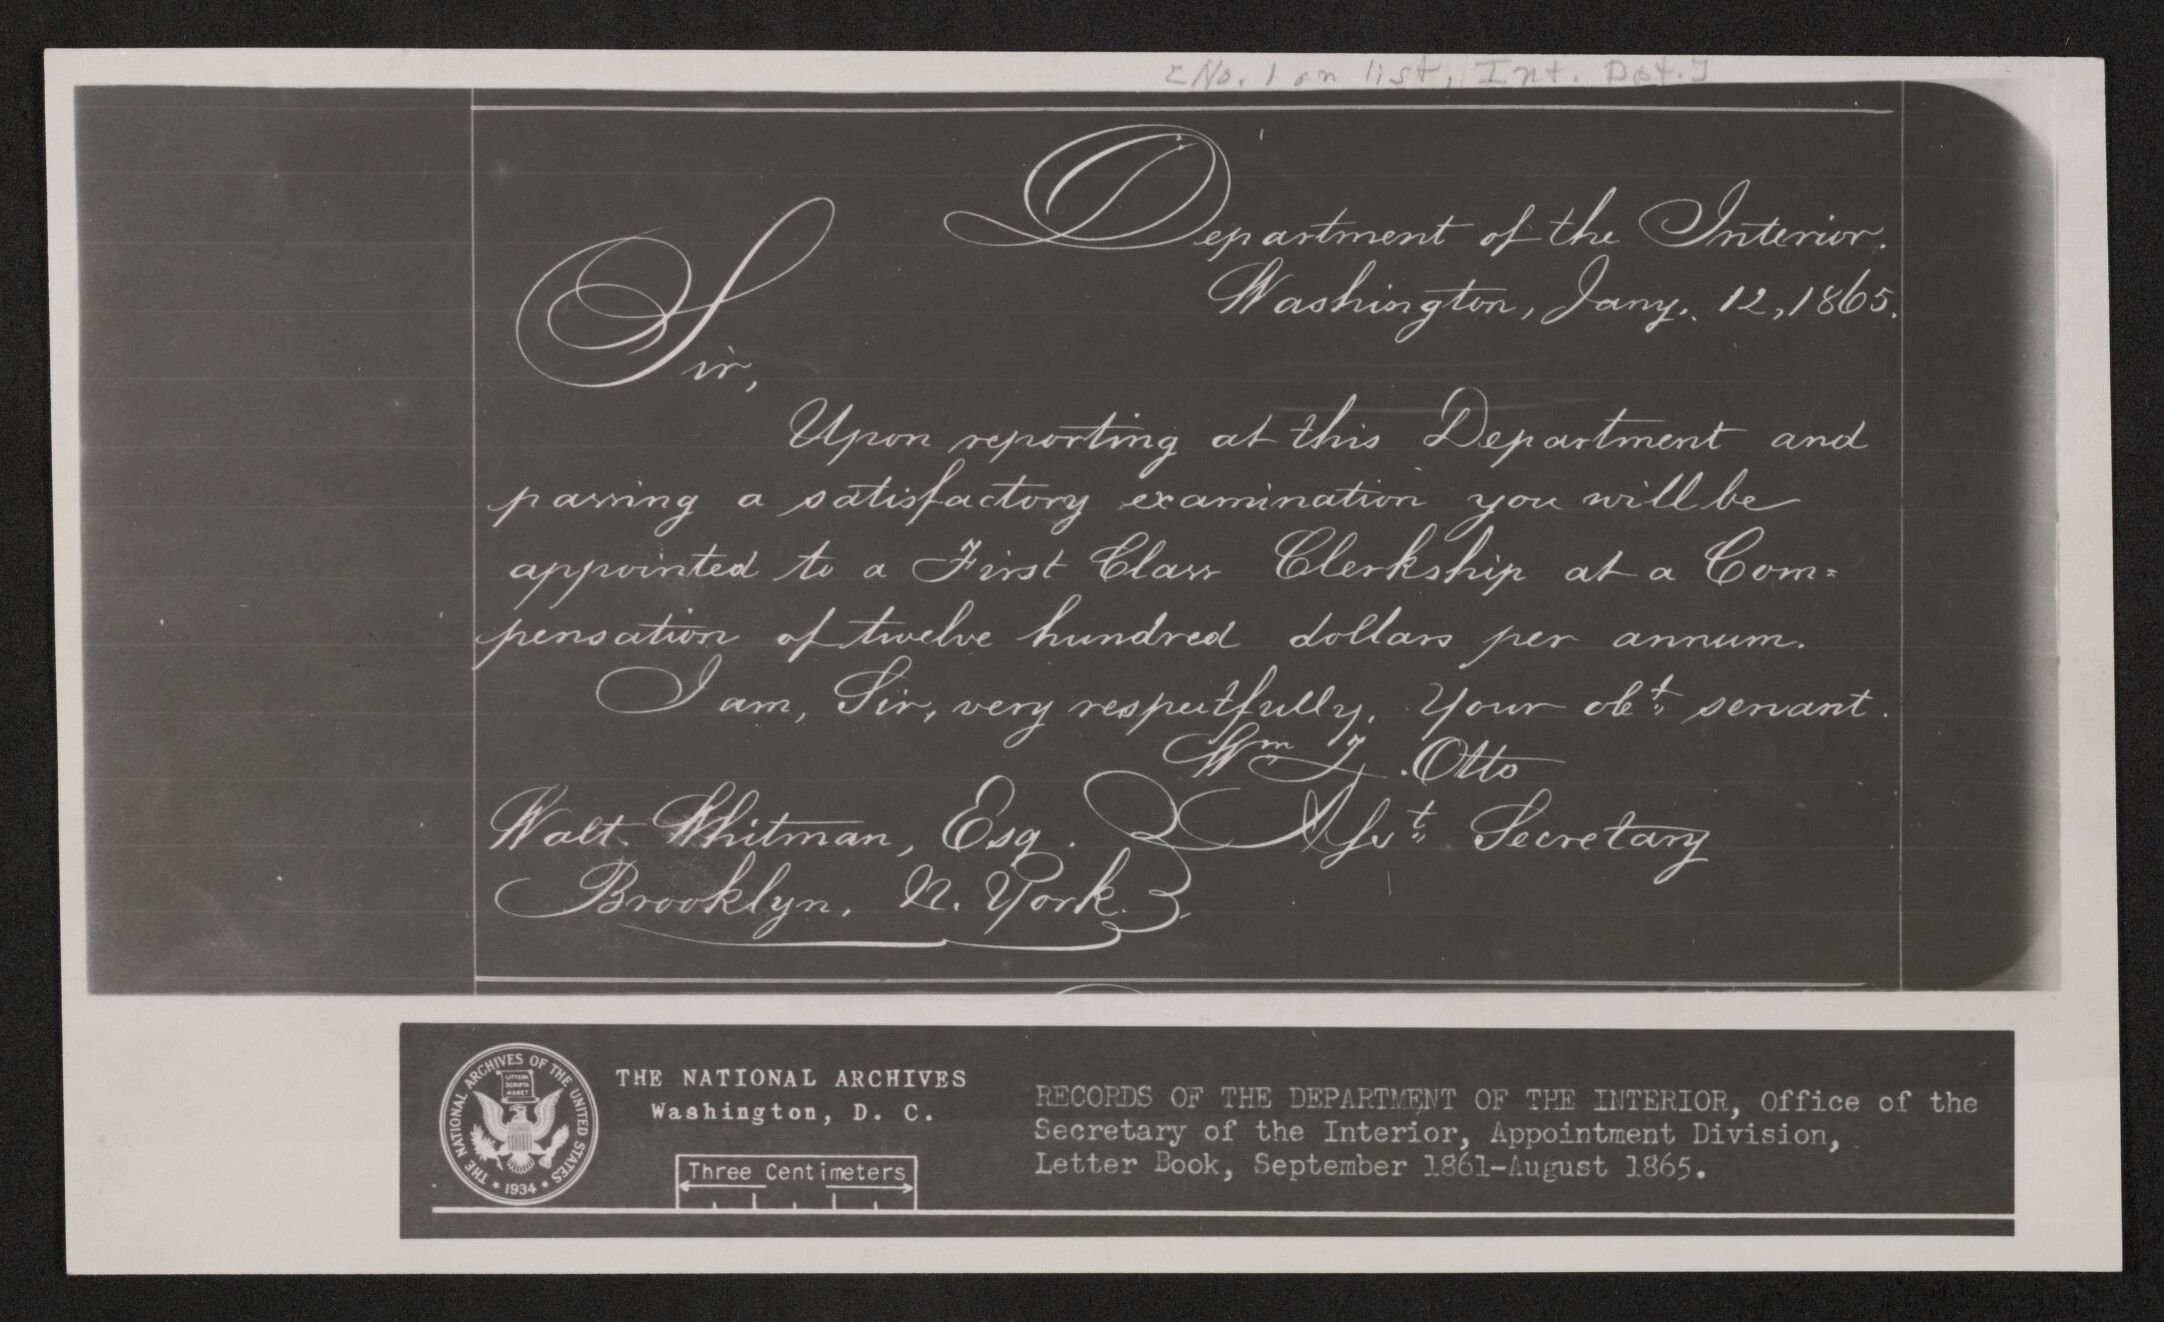 [No. 1 on list, Int. Dpt.]
Department of the Interior.
Washington, Jany. 12, 1865.
Sir,
Upon reporting at this Department and
passing a satisfactory examination you will be
appointed to a First Class Clerkship at a Com=
pensation of twelve hundred dollars per annum.
I am, Sir, very respectfully, Your obt. servant.
Wm T. Otto
Asst. Secretary
Walt. Whitman, Esq.
Brooklyn, N. York.
THE NATIONAL ARCHIVES OF THE UNITED STATES
LITTERA
SCRIPTA
MANET
* 1934 *
THE NATIONAL ARCHIVES
Washington, D. C.
Three Centimeters
RECORDS OF THE DEPARTMENT OF THE INTERIOR, Office of the
Secretary of the Interior, Appointment Division,
Letter Book, September 1861-August 1865.